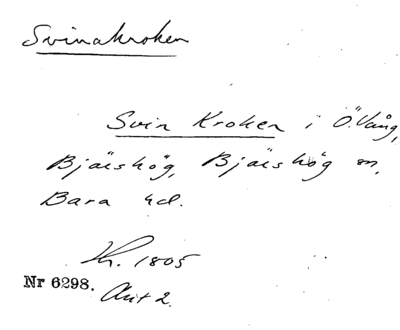 Svinakroken
Svin Kroken i Ö. Vång,
Bjärshög, Bjärshög sn,
Bara hd.
1805
Nr 6298.
Akt 2.